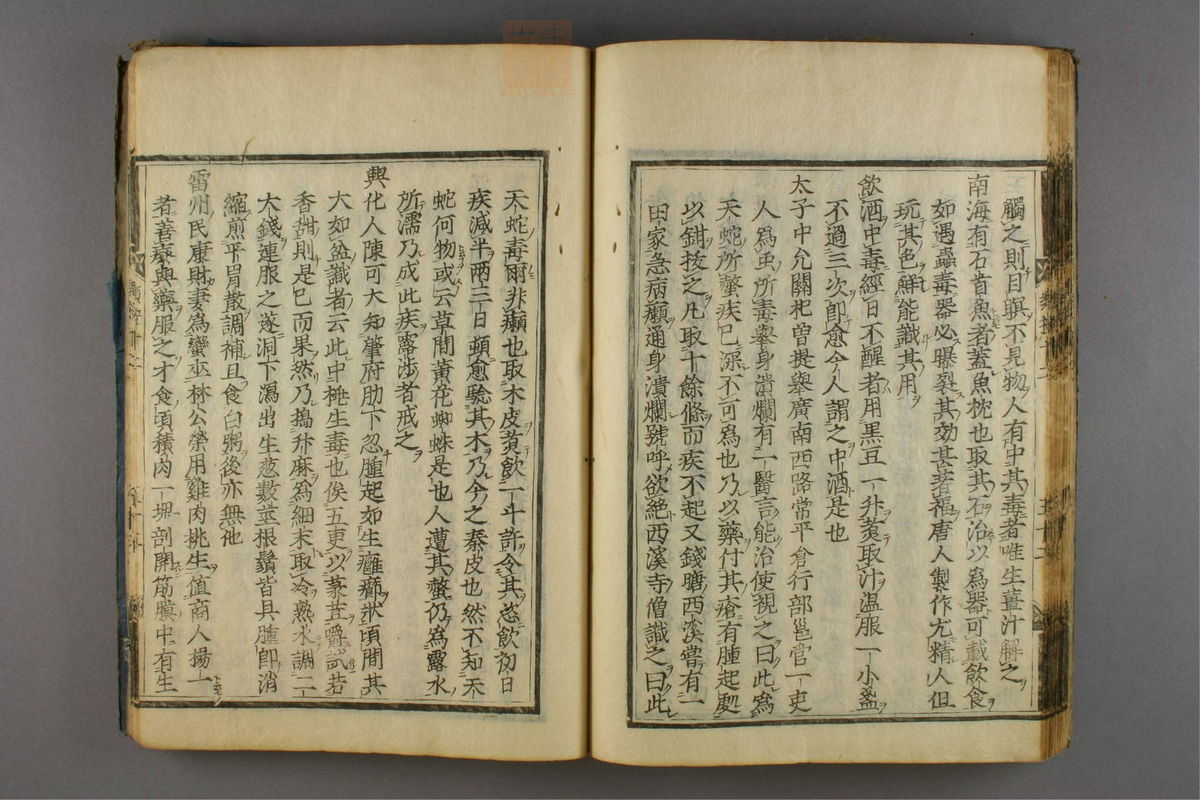 觸之則目瞑不見物人有中其毒者唯生薑汁解之
南海有石首魚者蓋魚枕也取其石治以爲器可載飲食
如遇蟲毒器必曝裂其効甚著福唐人製作尤精人但
玩其色鮮能識其用
飲酒中毒經日不醒者用黑豆一升煑取汁温服一小盞
不過三次即愈今人謂之中酒是也
太子中允關杞曽提舉廣南西路常平倉行部邕管一吏
人爲䖝所毒舉身潰爛有一醫言能治使視之曰此爲
天蛇所螫疾已深不可爲也乃以藥付其瘡有腫起處
以鉗拔之凡取十餘條而疾不起又錢塘西溪嘗有一
田家急病癩通身潰爛號呼欲絶西溪寺僧識之曰此
天蛇毒爾非癩也取木皮煑飲一斗許令其恣飲初日
疾減半兩三日頓愈驗其木乃今之秦皮也然不知天
蛇何物或云草間黄花蜘蛛是也人遭其螫仍爲露水
所濡乃成此疾露渉者戒之
興化人陳可大知肇府肋下忽腫起如生癰癤狀頃間其
大如盆識者云此中桃生毒也俟五更以菉荳嚼試若
香甜則是已而果然乃搗升麻爲細末取冷熟水調二
大錢連服之遂洞下瀉出生葱數莖根鬚皆具腫即消
縮煎平胃散調補且食白粥後亦無他
雷州民康財妻爲蠻巫林公榮用雞肉桃生値商人揚一
者善療與藥服之才食頃積肉一塊剖開筋膜中有生